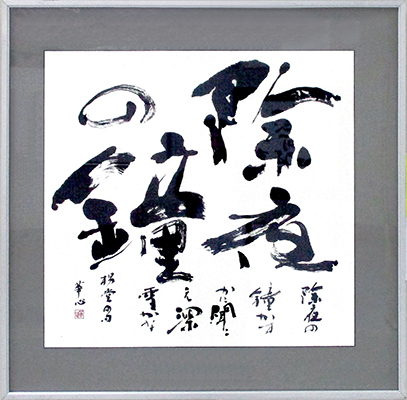 除夜
の鐘
除夜の
鐘かす
かに聞こ
え深
雪かな
松堂の句
華心